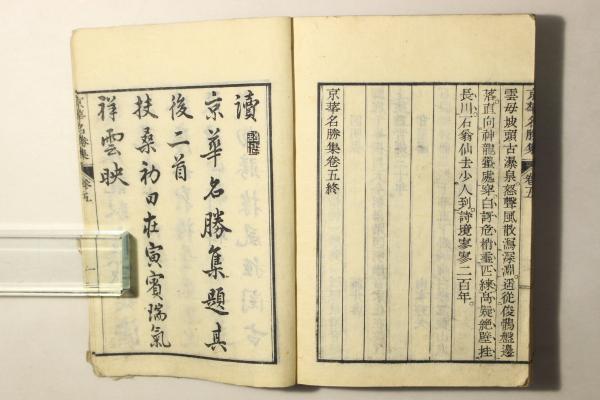 京華名勝集 卷五
雲母坡頭古瀑泉怒聲風散瀉深淵遥從俊鶻盤邊
落直向神龍蟄處穿白訝危梢垂匹練高疑絶壁挂
長川石翁仙去少人到詩境寥寥二百年
京華名勝集卷五終
讀
京華名勝集題其
後二首
扶桑初日在寅賓瑞氣
祥雲映
京華名勝集 卷五 一